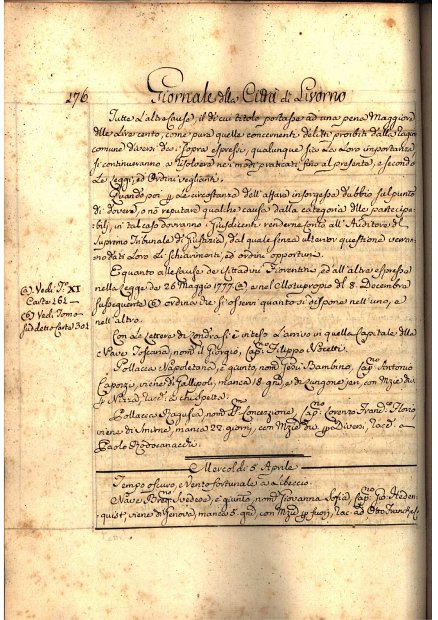 176
Giornale della Città di Livorno
Tutte l'altre Cause, il di cui titolo portasse ad una pena Maggiore
delle Lire cento, come pure quelle concernenti delitti proibiti dalla Ragion
comune diversi dei sopra espressi, qualunque sia la loro importanza
si continueranno a risolvere ne' modi praticati fino al presente, e secondo
le Leggi, ed Ordini veglianti.
Quando poi le circostanze dell'affare insorgesse dubbio sul punto
di dovere, o nò reputare qualche causa dalla categoria delle partecipa-
bili, in tal caso dovranno i Giusdicenti renderne conto all'Auditore del
Supremo Tribunale di Giustizia, dal quale senza ulterior questione verran-
no dati loro li schiarimenti, ed ordini opportuni.
E quanto alle Cause de Cittadini Fiorentini, ed all'altre espresse
nella Legge de 26 Maggio 1777 (a) e nel Motuproprio del 8. Dicembre
susseguente (b) ordina che si osservi quanto si dispone nell'uno, e
nell'altro.
(a). Vedi T.º XI
Carte 261 —
(b) Vedi Tomo
suddetto Carte 301
Con le Lettere di Londra si è inteso l'arrivo in quella Capitale della
Nave Toscana, nom.ª il Giorgio, Cap.º Filippo
Pollacca Napoletana, è giunta, nom.ª Gesù Bambino, Cap.no Antonio
Caponze, viene di Gallipoli, manca 18. gni, e di Longone jeri, con Mzie di
Nizza, e chi spetta.
Pollacca Ragusea, nom.ª la Concezione, Cap.no Lorenzo Florio
viene di Smirne, manca 22. giorni, con Mzie Diversi, Racc. a
Paolo Rodocanacchi.
Mercoldì 5 Aprile
Tempo oscuro, e Vento fortunale a Libeccio.
Nave Svedese, è giunta, nom.ª Giovanna Sofia, Cap.no Gio. Heden-
quist, viene di Genova, manca 5. gni, con Mzie fuori, Rac. ad Otto Franck e C.